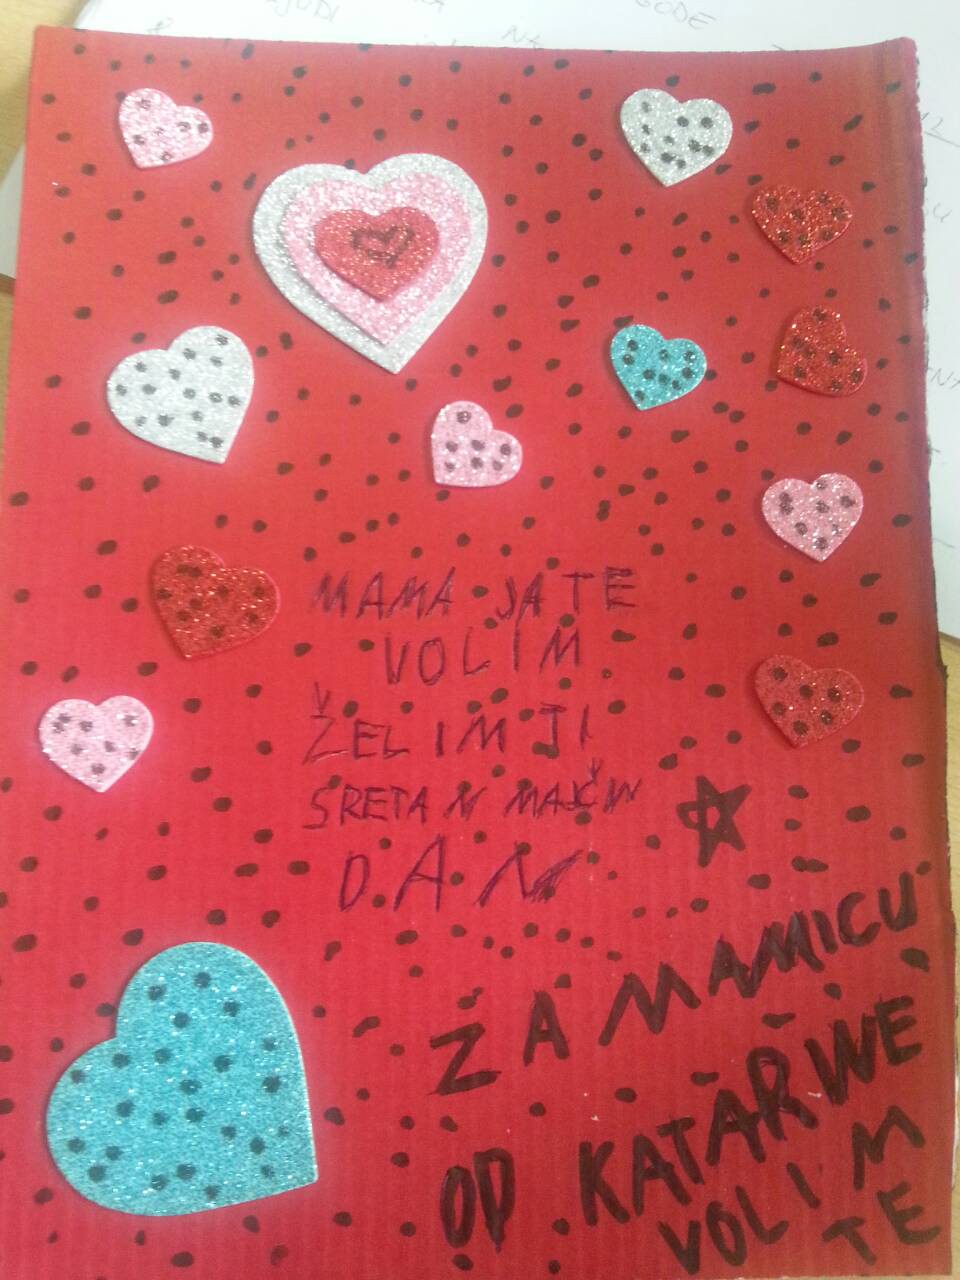 GODE
MAMA JA TE
VOLIM
ŽELIM JI
SRETAN MAJČIN
DAN
ZA MAMICU
OD KATARINE
VOLIM
TE